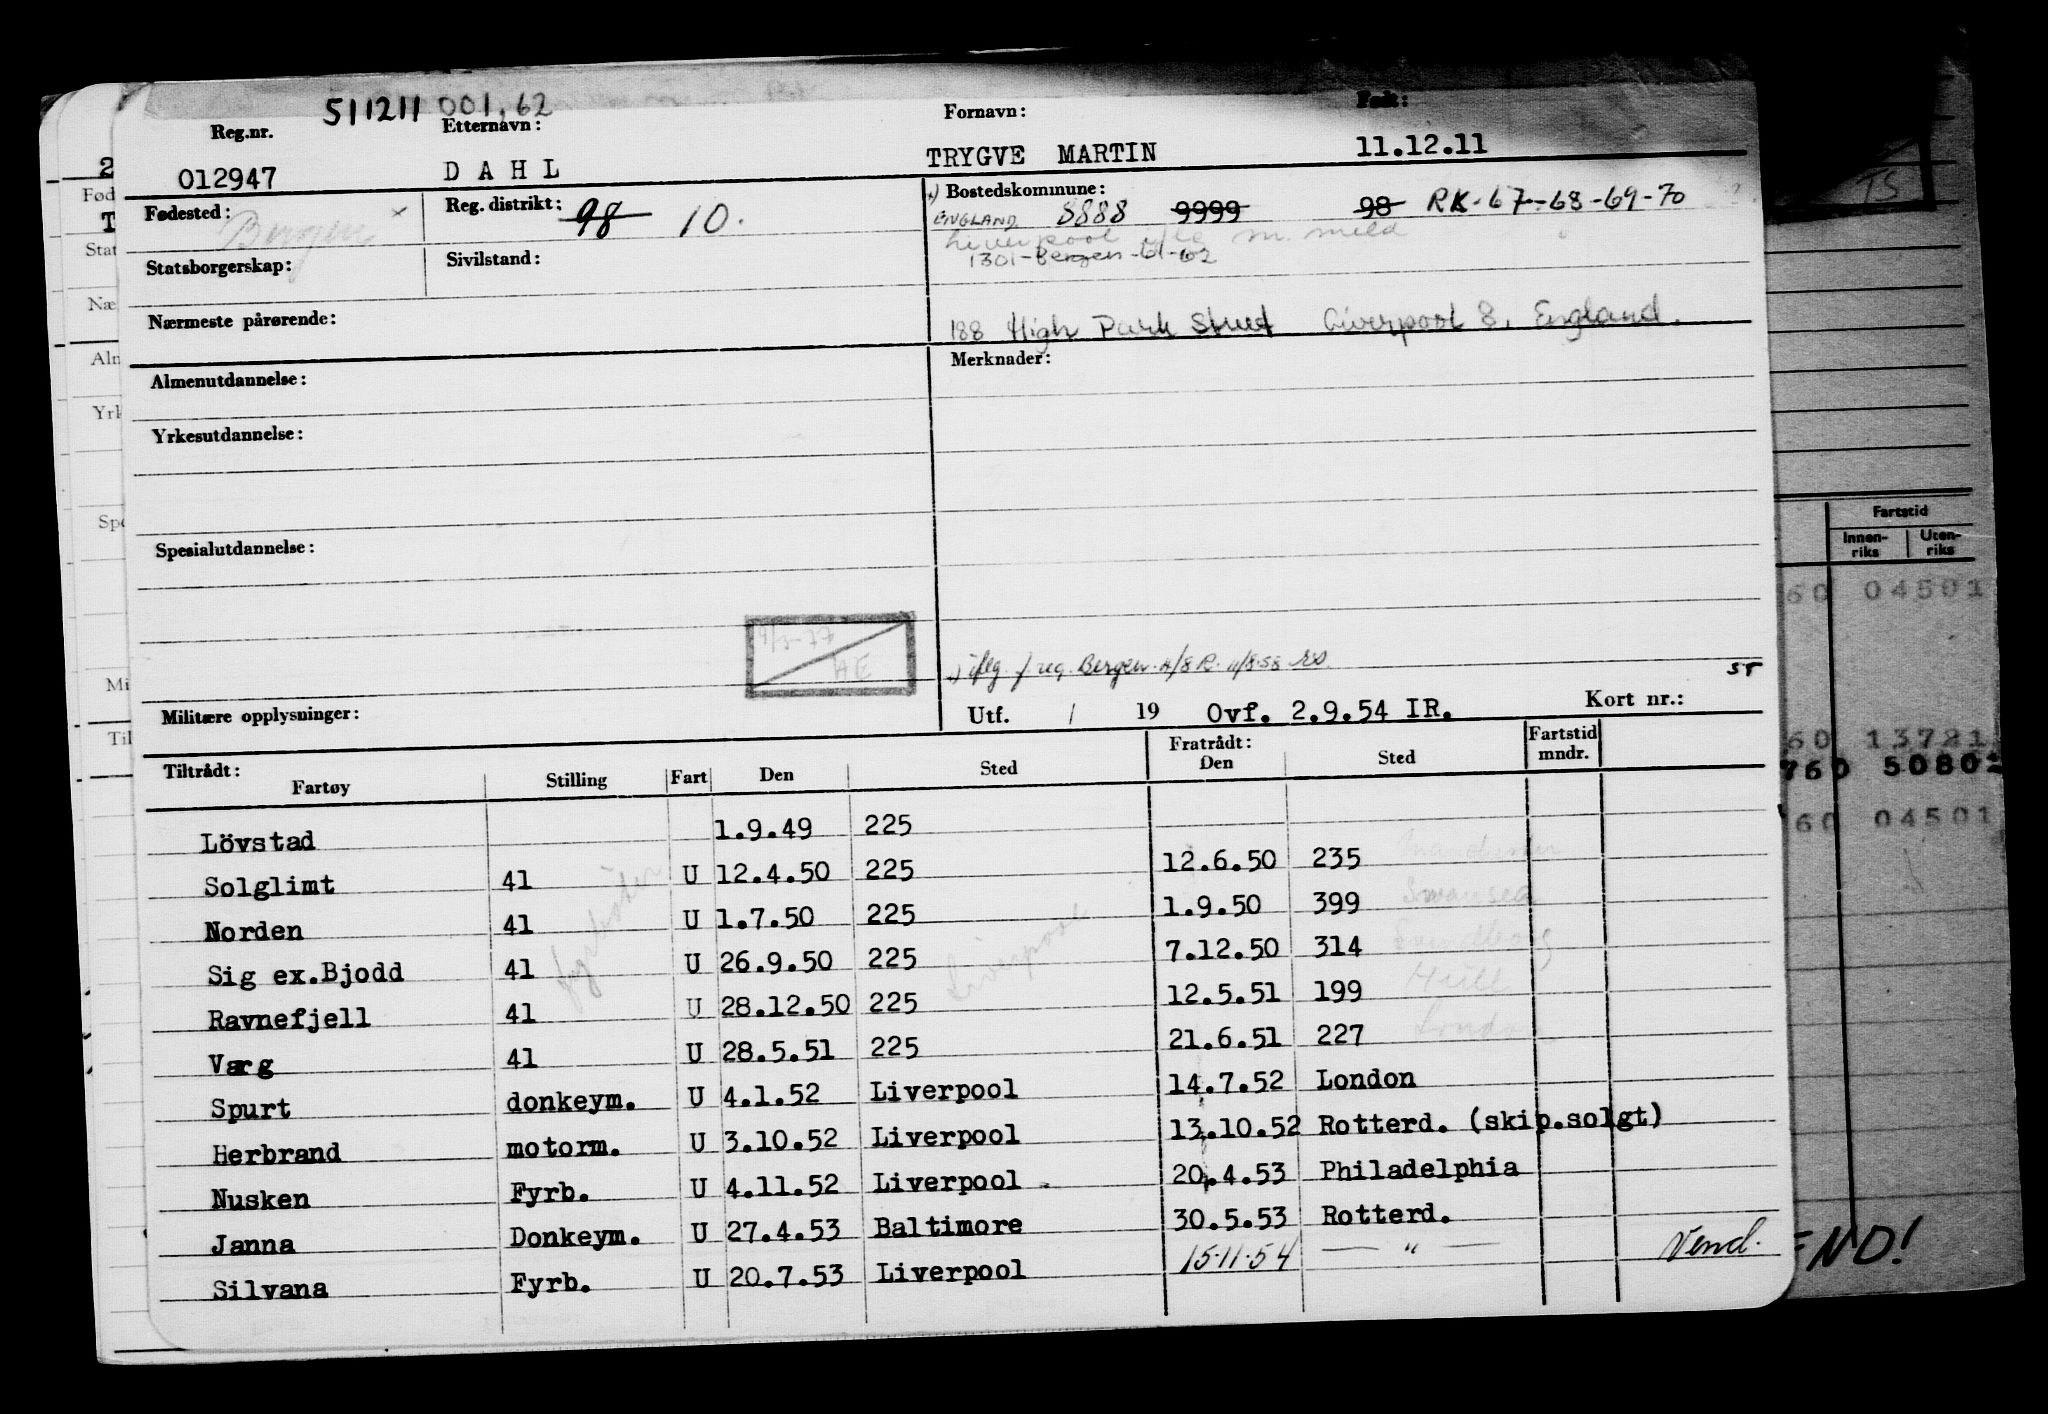 511211 001.62
Reg.nr. Etternavn: Fornavn: Født:
012947 DAHL TRYGVE MARTIN 11.12.11
Fødested: Bergen x Reg. distrikt: 98 10. Bostedskommune: ENGLAND 8888 9999 98 RK-67-68-69-70
Liverpool m. meld
Statsborgerskap: Sivilstand: 1301-Bergen-61-62
Nærmeste pårørende: 188 High Park Street Liverpool 8, England.
Almenutdannelse: Merknader:
Yrkesutdannelse:
Spesialutdannelse:
4/3-77
AE
reg. Bergen
ST
Militære opplysninger: Utf. / 19 Ovf. 2.9.54 IR. Kort nr.:
Tiltrådt: Fratrådt: Fartstid
Fartøy Stilling Fart Den Sted Den Sted mndr.
Lövstad 1.9.49 225
Solglimt 41 U 12.4.50 225 12.6.50 235
Norden 41 U 1.7.50 225 1.9.50 399 Swansea
Sig ex.Bjodd 41 fyrbøter U 26.9.50 225 Liverpool 7.12.50 314 Svendborg
Ravnefjell 41 U 28.12.50 225 12.5.51 199 Hull
Varg 41 U 28.5.51 225 21.6.51 227 London
Spurt donkeym. U 4.1.52 Liverpool 14.7.52 London
Herbrand motorm. U 3.10.52 Liverpool 13.10.52 Rotterd. (skip.solgt)
Nusken Fyrb. U 4.11.52 Liverpool 20.4.53 Philadelphia
Janna Donkeym. U 27.4.53 Baltimore 30.5.53 Rotterd.
Silvana Fyrb. U 20.7.53 Liverpool 15.11.54 — " — Vend.
2
Fød
T
Stat
Næ
Aln
Yrk
Spe
Mi
Til
TS
Fartstid
Innen-
riks
Uten-
riks
60 04501
60 13781
760 50802
60 04501
ND!